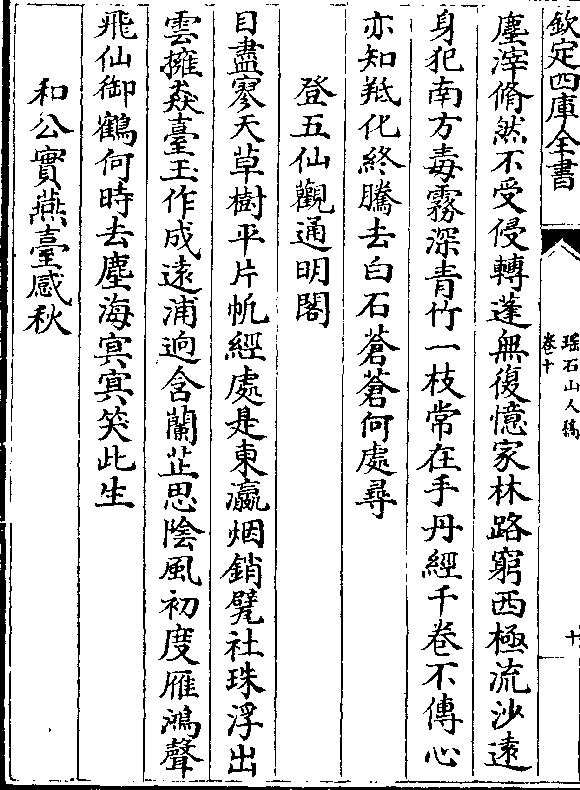 欽定四庫全書
瑶石山人稿
卷十
十
塵滓翛然不受侵轉蓬無復憶家林路窮西極流沙遠
身犯南方毒霧深青竹一枝常在手丹經千卷不傳心
亦知羝化終騰去白石蒼蒼何處尋
登五仙觀通明閣
目盡寥天草樹平片帆經處是東瀛烟銷甓社珠浮出
雲擁猋臺玉作成遠浦逈含蘭芷思陰風初度雁鴻聲
飛仙御鶴何時去塵海㝠㝠笑此生
和公實燕臺感秋